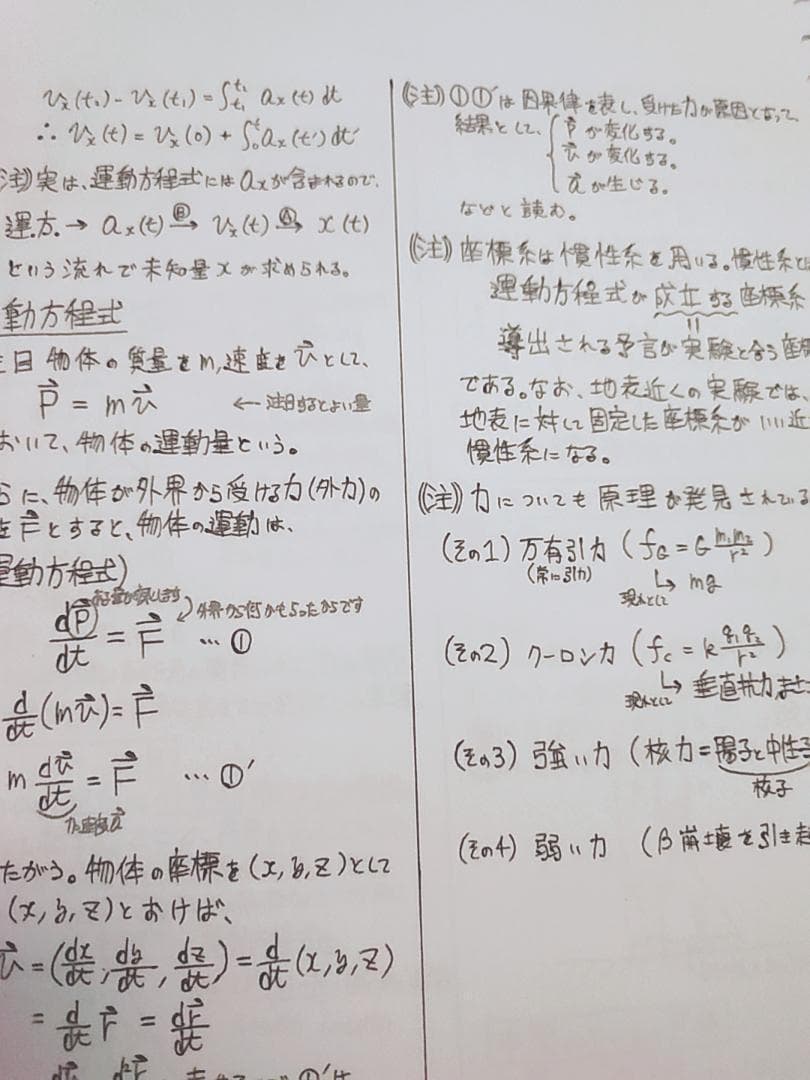 v_x(t_2) - v_x(t_1) = ∫_{t_1}^{t_2} a_x(t) dt
∴ v_x(t) = v_x(0) + ∫_0^t a_x(t') dt'
注)) 実は、運動方程式には a_x が含まれるので、
運.方. → a_x(t) Ⓑ→ v_x(t) Ⓐ→ x(t)
という流れで未知量 x が求められる。
動方程式
目 物体の質量を m, 速度を v⃗ として、
p⃗ = m v⃗ ← 注目するとよい量
おいて、物体の運動量という。
に、物体が外界から受ける力(外力)の
を F⃗ とすると、物体の運動は、
運動方程式)
外界から何かもらったからです
dp⃗/dt = F⃗ … ①
d/dt (m v⃗) = F⃗
m dv⃗/dt = F⃗ … ①'
加速度 a⃗
たがう。物体の座標を (x, y, z) として
(x, y, z) とおけば、
v⃗ = (dx/dt, dy/dt, dz/dt) = d/dt (x, y, z)
= d/dt r⃗ = dr⃗/dt
①'は
((注)) ①①' は因果律を表し、受けた力が原因となって、
結果として、{ p⃗ が変化する。
v⃗ が変化する。
a⃗ が生じる。
などと読む。
((注)) 座標系は慣性系を用いる。慣性系とは
運動方程式が成立する座標系
||
導出される予言が実験と合う座標
である。なお、地表近くの実験では、
地表に対して固定した座標系がいい近
慣性系になる。
((注)) 力についても原理が発見されている
(その1) 万有引力 (f_G = G m_1m_2/r^2)
(常に引力)
現れとして → mg
(その2) クーロン力 (f_c = k q_1q_2/r^2)
現れとして → 垂直抗力
(その3) 強い力 (核力 = 陽子と中性子
核子
(その4) 弱い力 (β崩壊を引き起